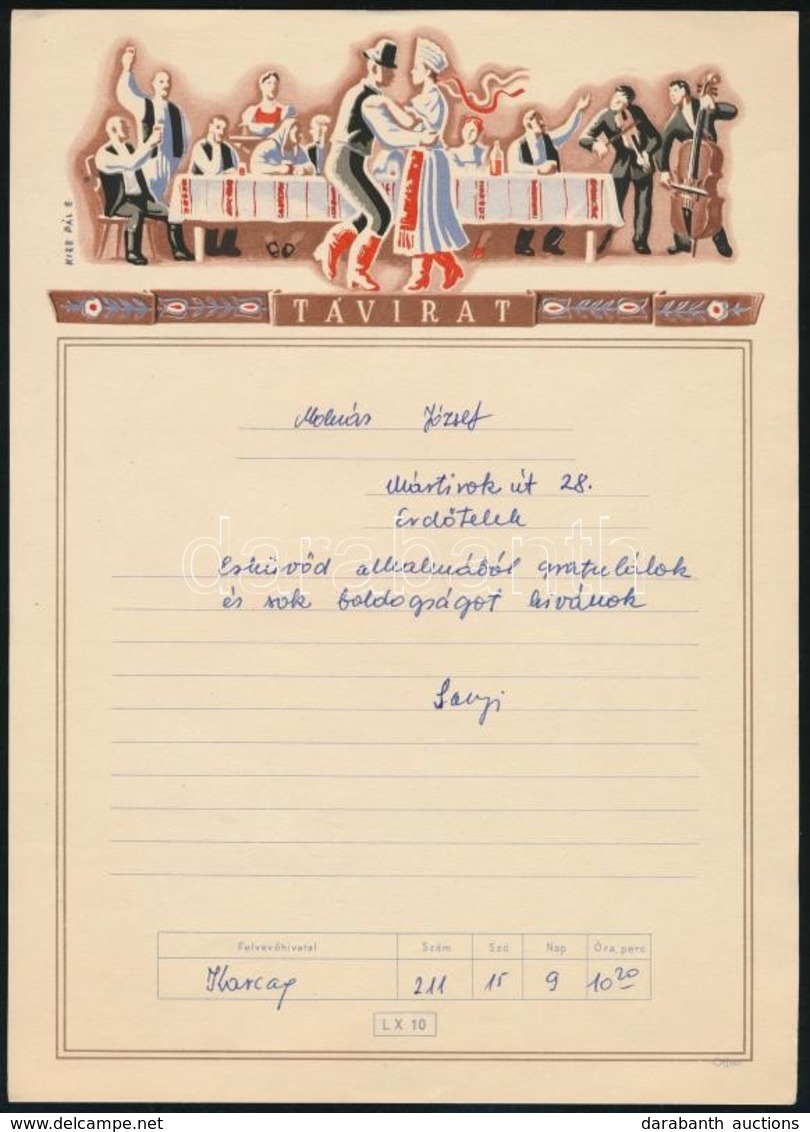 KISS PÁL E
TÁVIRAT
Molnár József
Mártirok út 28.
Erdőtelek
Esküvőd alkalmából gratulálok
és sok boldogságot kivánok
Sanyi
Felvevőhivatal Szám Szó Nap Óra, perc
Karcag 211 15 9 10 20
LX 10
darabanth
darabanth auctions